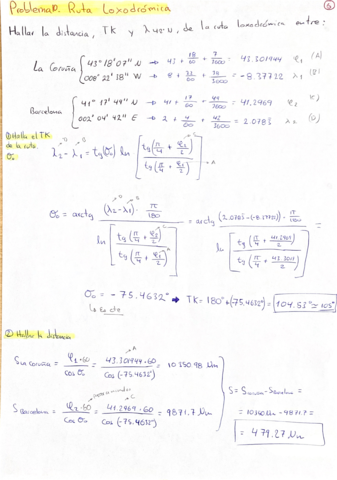 Problema D. Ruta Loxodrómica
Hallar la distancia, TK y λ 45º N, de la ruta loxodrómica entre:
La Coruña { 43º 18' 07" N → 43 + 18/60 + 7/3600 = 43.301944 φ1 (A)
008º 22' 38" W → 8 + 22/60 + 38/3600 = -8.37722 λ1 (B)
Barcelona { 41º 17' 49" N → 41 + 17/60 + 49/3600 = 41.2969 φ2 (C)
002º 04' 42" E → 2 + 4/60 + 42/3600 = 2.0783 λ2 (D)
① Hallar el TK
de la ruta.
λ2 - λ1 = tg(σ0) ln [ tg(π/4 + φ2/2) / tg(π/4 + φ1/2) ]
σ0 = arctg (λ2-λ1) · π/180 / ln [ tg(π/4 + φ2/2) / tg(π/4 + φ1/2) ] = arctg (2.0783-(-8.37722)) π/180 / ln [ tg(π/4 + 41.2969/2) / tg(π/4 + 43.3019/2) ] =
σ0 = -75.4632º → TK = 180º + (-75.4632º) = 104.53º ≈ 105º
↳ es cte
② Hallar la distancia
S La Coruña = φ1·60 / cos σ0 = 43.301944·60 / cos(-75.4632º) = 10350.98 Nm
S Barcelona = φ2·60 / cos σ0 = 41.2969·60 / cos(-75.4632º) = 9871.7 Nm
S = S Coruña - S Barcelona =
= 10350.98 - 9871.7 =
= 479.27 Nm